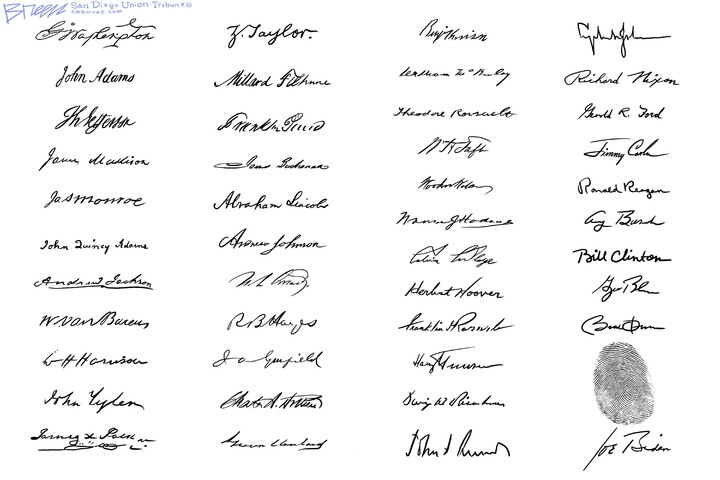 Breen San Diego Union-Tribune
CAGLE.COM
G Washington
John Adams
Th Jefferson
James Madison
James Monroe
John Quincy Adams
Andrew Jackson
W. Van Buren
W H Harrison
John Tyler
James K Polk
Z. Taylor.
Millard Fillmore
Franklin Pierce
James Buchanan
Abraham Lincoln
Andrew Johnson
R B Hayes
J A Garfield
Chester A. Arthur
Grover Cleveland
Benj Harrison
Theodore Roosevelt
W H Taft
Woodrow Wilson
Warren G Harding
Calvin Coolidge
Herbert Hoover
Franklin D Roosevelt
Harry Truman
Dwight D Eisenhower
Richard Nixon
Gerald R. Ford
Jimmy Carter
Ronald Reagan
Bill Clinton
Joe Biden